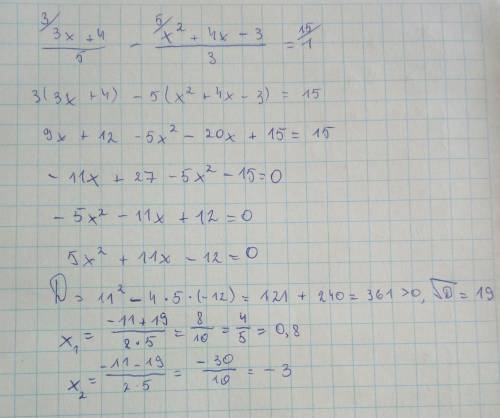 3/ 3x + 4 / 5 - 5/ x² + 4x - 3 / 3 = 15/ / 1
3(3x + 4) - 5(x² + 4x - 3) = 15
9x + 12 - 5x² - 20x + 15 = 15
- 11x + 27 - 5x² - 15 = 0
- 5x² - 11x + 12 = 0
5x² + 11x - 12 = 0
D = 11² - 4 · 5 · (-12) = 121 + 240 = 361 > 0, √D = 19
x₁ = -11 + 19 / 2 · 5 = 8 / 10 = 4 / 5 = 0,8
x₂ = -11 - 19 / 2 · 5 = -30 / 10 = - 3